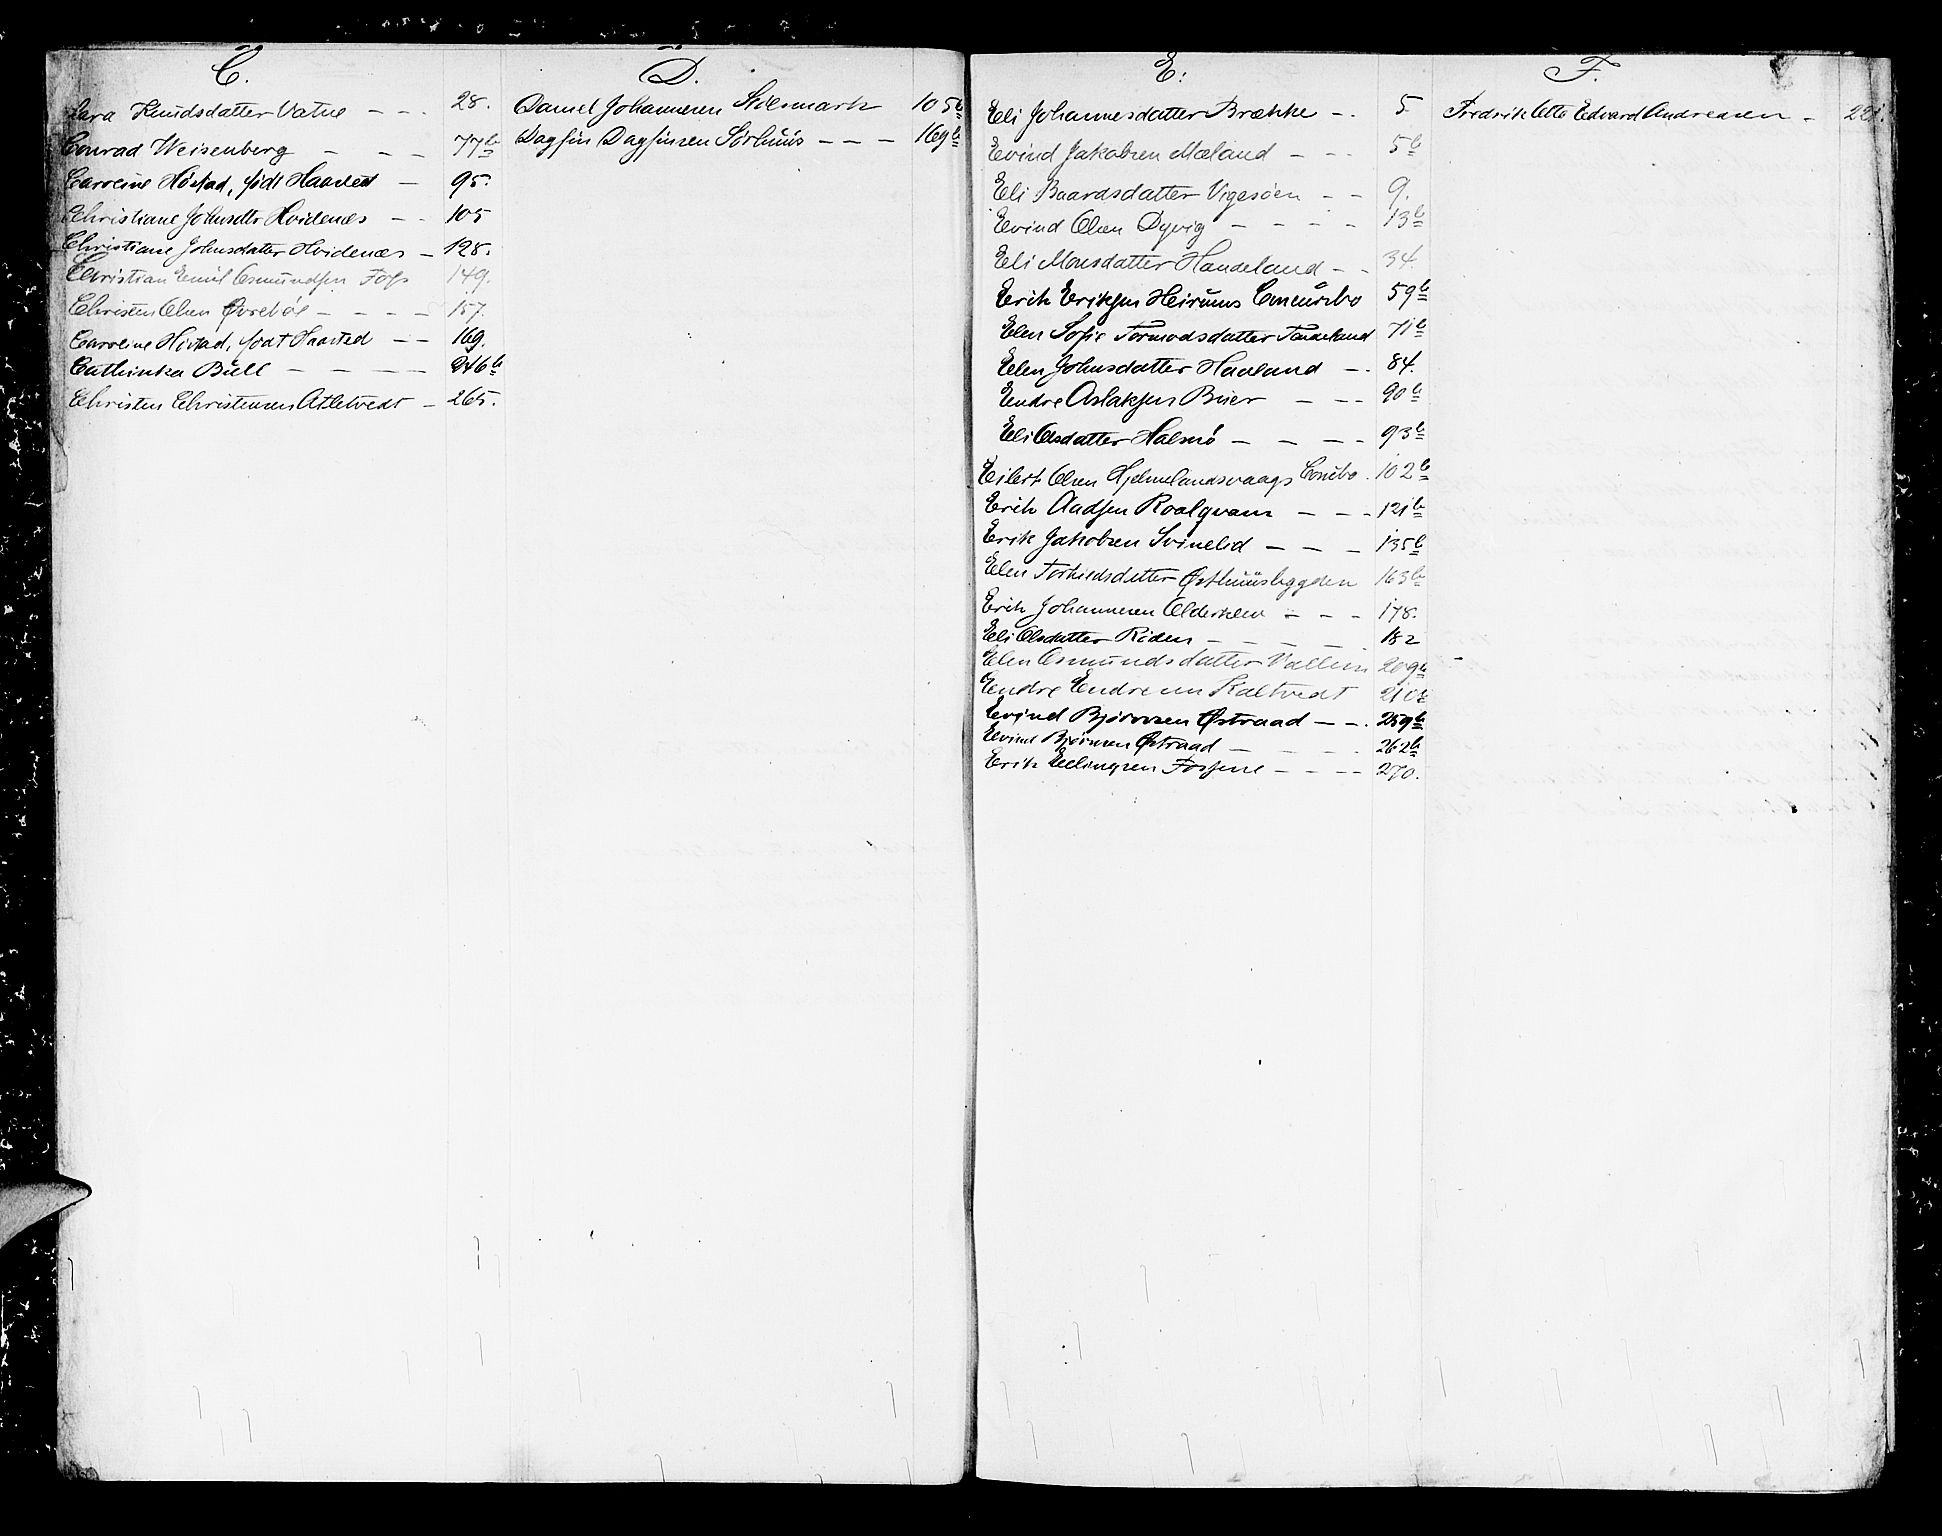 C.
Cara Knudsdatter Vatne - - . 28.
Conrad Weisenberg - - - 77b
Caroline Høstad, født Haasted - 95.
Christiane Johnsdtr Hvidenes - - 105
Christiane Johnsdatter Hvidenæs - 128.
Christian Emil Osmundsen Fos 149.
Christen Olsen Øvrebøe - - - - 157.
Caroline Høstad, født Haasted - - 169.
Cathinka Bull - - - - - 246b
Christen Christensen Atletvedt - 265.
D.
Daniel Johannesen Stølsmark 105b
Dagfin Dagfinsen Sørhuus - - - 169b
E:
Eli Johannesdatter Brække - . 5
Eivind Jakobsen Mæland - - - 5b
Eli Baardsdatter Vigesøen - - 9.
Eivind Olsen Dyvig - - - - 13b
Eli Monsdatter Handeland - - 34.
Erik Eriksen Heiruns Concursbo 59b
Elen Sofie Tormodsdatter Tandeland 71b
Elen Johnsdatter Haaland - . 84.
Endre Aslaksen Buer - - - 90b
Eli Olsdatter Halsnø - - - - 93b
Eilert Olsen Hjelmelandsvaags Concbo . 102b
Erik Aadsen Roalqvam - - - 121b
Erik Jakobsen Svinelid - - - 135b
Elen Torkildsdatter Østhuusbygden 163b
Erik Johannesen Olderklev - - - 178.
Eli Olsdatter Røden - - - - 182
Elen Osmundsdatter 209b
Endre Endresen Kaltvedt 210b
Eivind Bjørnsen Østraad - - . 259b
Eivind Bjørnsen Østraad - - - - 262b
Erik Ellingsen Fosse - - - - 270.
F.
Fredrik Otto Edvard Andreasen - 221.